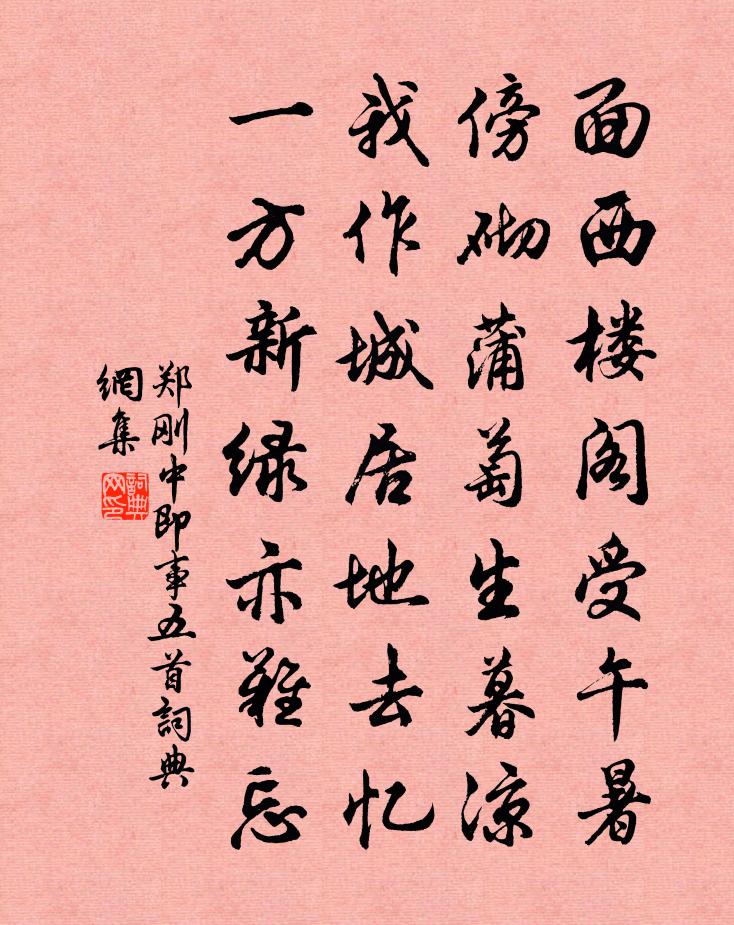 面西楼阁受午暑
傍砌蒲萄生暮凉
我作城居地去忆
一方新绿亦难忘
郑刚中即事五首詞典
網集
詞典
网印